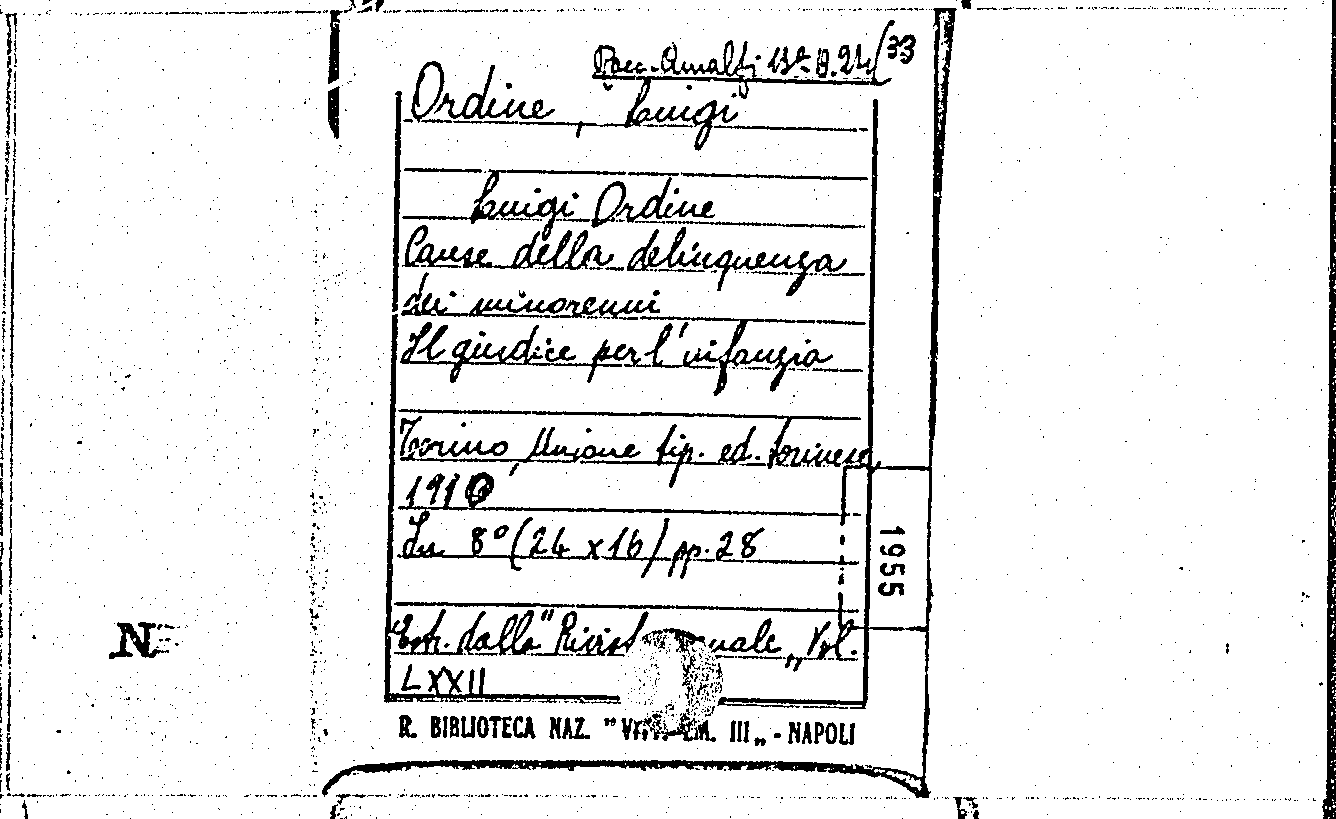 Racc. Amalfi 13ª B. 24/33
Ordine, Luigi
Luigi Ordine
Cause della delinquenza
dei minorenni
Il giudice per l'infanzia
Torino, Unione tip. ed. torinese,
1910
In 8° (24 x 16) pp. 28
1955
Estr. dalla "Rivista „ Vol.
LXXII
N
R. BIBLIOTECA NAZ. " EM. III „ - NAPOLI